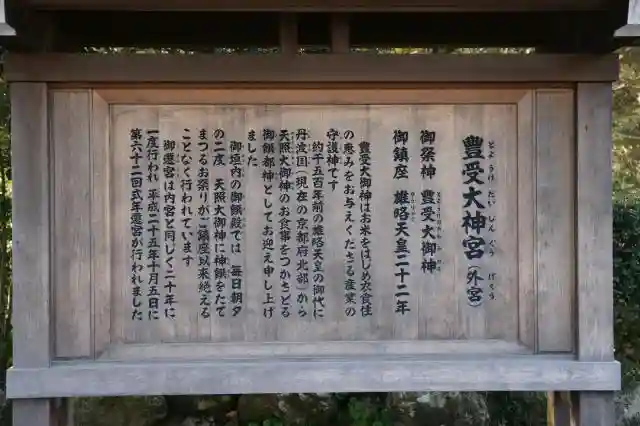 豊受大神宮（外宮）
とようけだいじんぐう げくう
御祭神 豊受大御神
とようけのおおみかみ
御鎮座 雄略天皇二十二年
豊受大御神はお米をはじめ衣食住
の恵みをお与えくださる産業の
守護神です
約千五百年前の雄略天皇の御代に
丹波国（現在の京都府北部）から
天照大御神のお食事をつかさどる
御饌都神としてお迎え申し上げ
ました
御垣内の御饌殿では 毎日朝夕
の二度 天照大御神に神饌をたて
まつるお祭りがご鎮座以来絶える
ことなく行われています
御遷宮は内宮と同じく二十年に
一度行われ 平成二十五年十月五日に
第六十二回式年遷宮が行われました